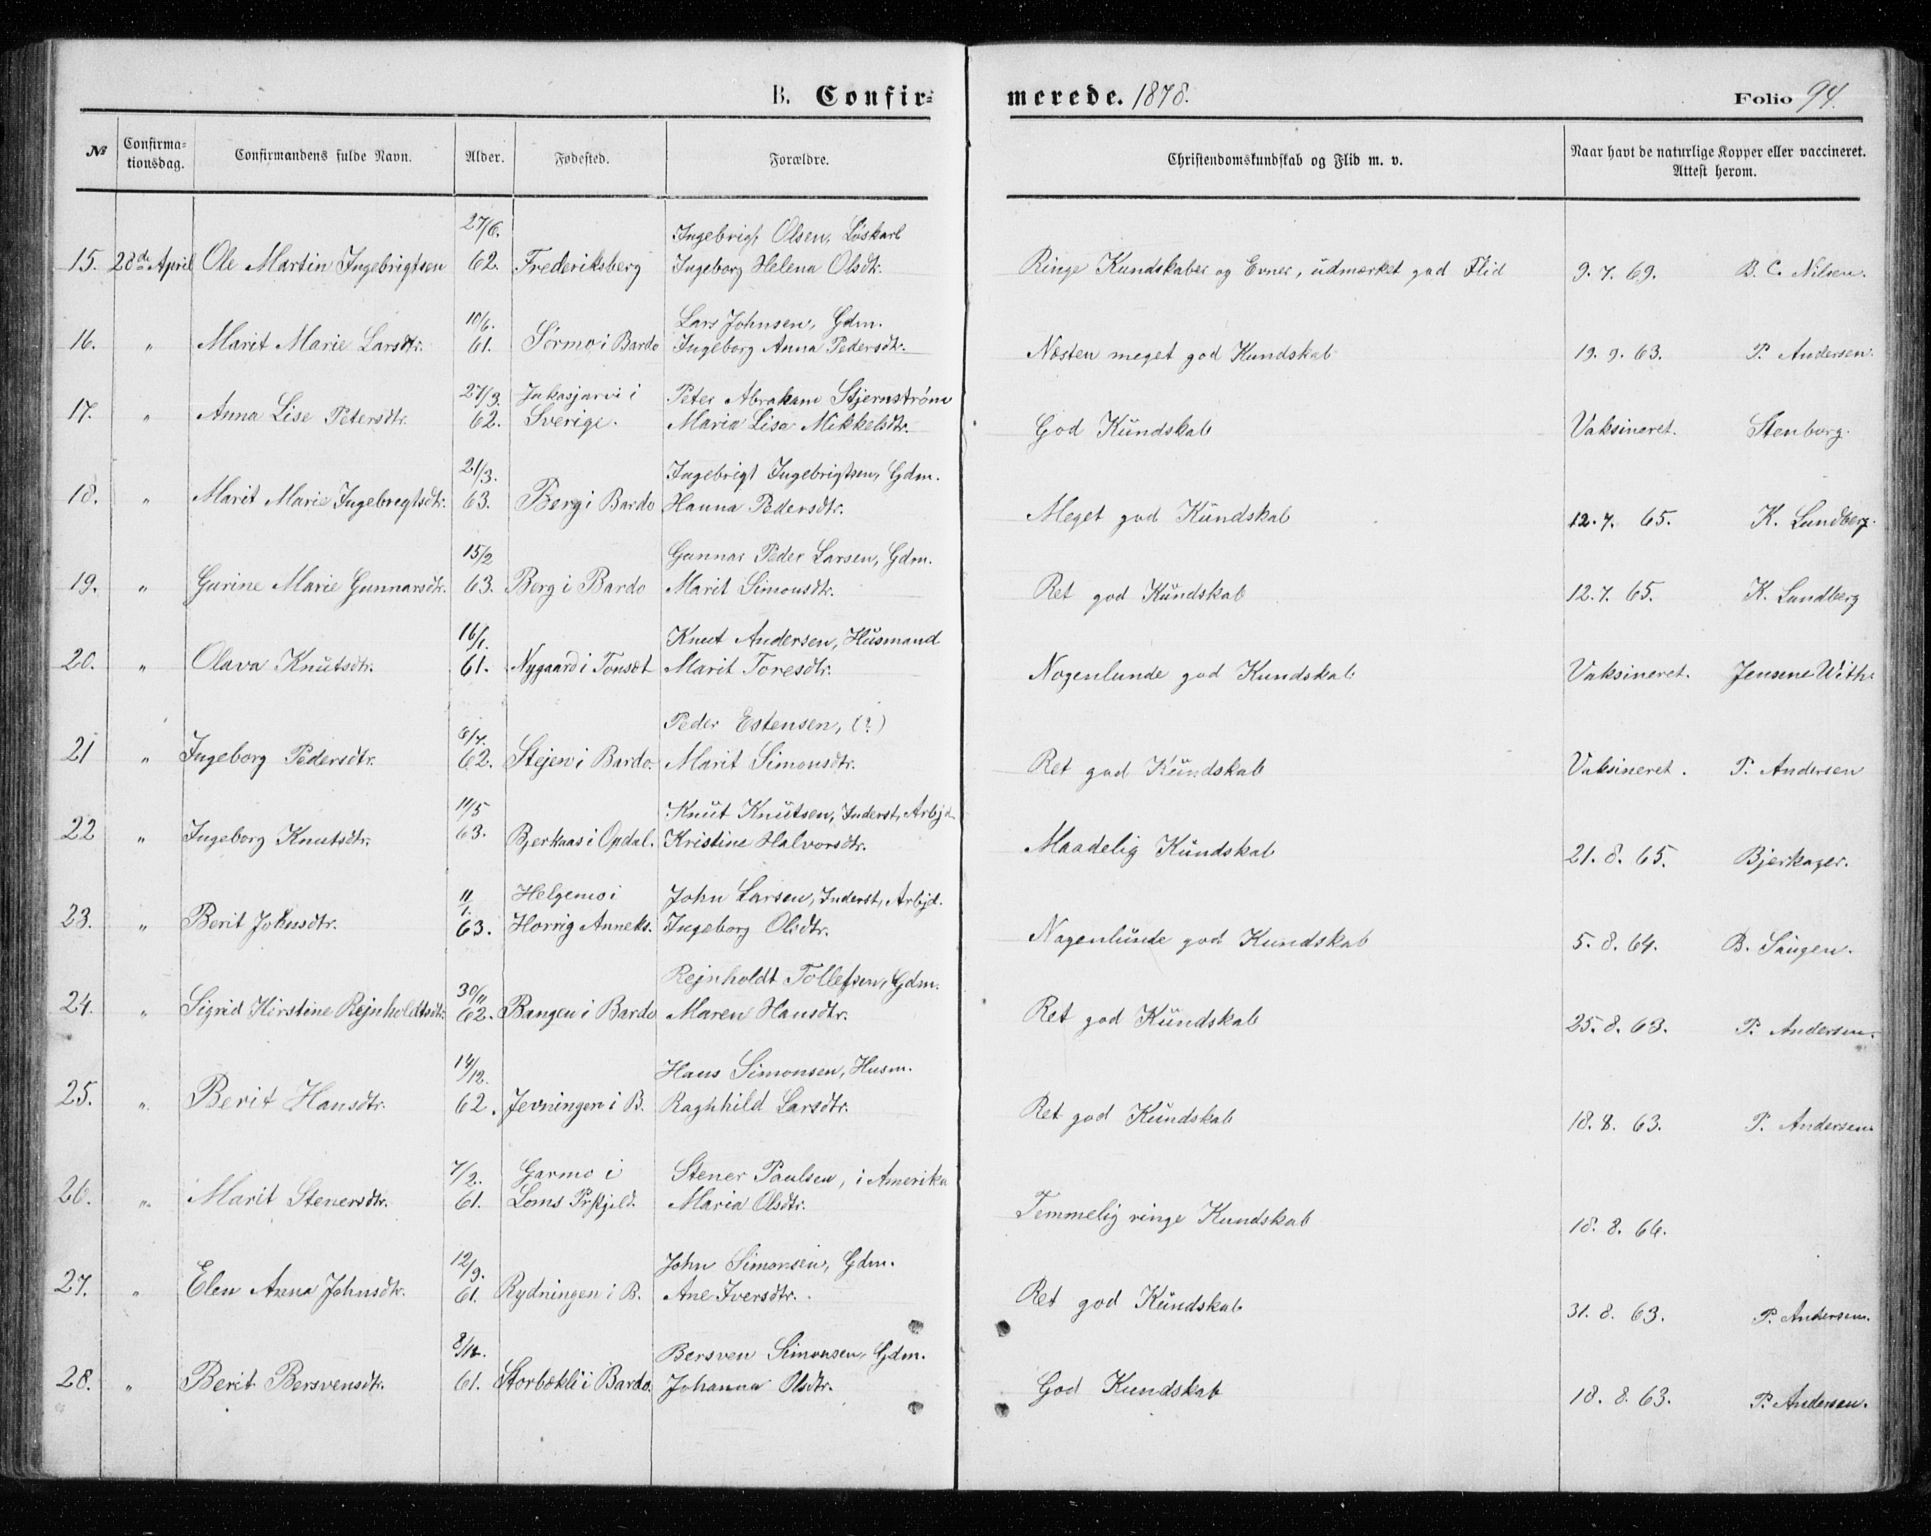 B. Confir=
merede. 1878.
Folio 94.
№
Confirma-
tionsdag.
Confirmandens fulde Navn.
Alder.
Fødested.
Forældre.
Christendomskundskab og Flid m. v.
Naar havt de naturlige Kopper eller vaccineret.
Attest herom.
27/6. Ingebrigt Olsen, Løskarl
15. 28de April Ole Martin Ingebrigtsen 62. Frederiksberg Ingeborg Helena Olsdtr. Ringe Kundskaber og Evner, udmærket god Flid 9. 7. 69. B. C. Nilsen.
10/6. Lars Johnsen, Gdm.
16. " Marit Marie Larsdtr. 61. Sørmo i Bardo Ingeborg Anna Pedersdtr. Næsten meget god Kundskab 19. 9. 63. P. Andersen.
27/3. Jukasjarvi i Peter Abraham Stjernstrøm
17. " Anna Lise Petersdtr. 62. Sverige. Maria Lisa Mikkelsdtr. God Kundskab Vaksineret. Stenborg.
21/3. Ingebrigt Ingebrigtsen, Gdm.
18. " Marit Marie Ingebregtsdtr. 63. Berg i Bardo Hanna Pedersdtr. Meget god Kundskab 12. 7. 65. K. Lundberg.
15/2 Gunnar Peder Larsen, Gdm.
19. " Gurine Marie Gunnarsdtr. 63. Berg i Bardo Marit Simonsdtr. Ret god Kundskab 12. 7. 65. K. Lundberg
16/1. Knut Andersen, Husmand
20. " Olava Knutsdtr. 61. Nygaard i Tonset Marit Toresdtr. Nogenlunde god Kundskab Vaksineret. Jensene With.
6/7. Peder Estensen, (?)
21 " Ingeborg Pedersdtr. 62. Stejen i Bardo. Marit Simonsdtr. Ret god Kundskab Vaksineret. P. Andersen
11/5 Knut Knutsen, Inderst, Arbjd.
22 " Ingeborg Knutsdtr. 63. Bjerkaas i Opdal. Kristine Halvorsdtr. Maadelig Kundskab 21. 8. 65. Bjerkager.
11/1. Helgemo i John Larsen, Inderst, Arbjd.
23. " Berit Johnsdtr. 63. Horrig Anneks. Ingeborg Olsdtr. Nogenlunde god Kundskab 5. 8. 64. B. Saugen.
30/11 Rejnholdt Tollefsen, Gdm.
24. " Sigrid Kirstine Rejnholdtsdtr. 62. Bangen i Bardo Maren Hansdtr. Ret god Kundskab 25. 8. 63. P. Andersen.
14/12. Hans Simonsen, Husm.
25. " Berit Hansdtr. 62. Jevningen i B. Raghhild Larsdtr. Ret god Kundskab 18. 8. 63. P. Andersen
7/2. Garmo i Stener Paulsen, i Amerika
26. " Marit Stenersdtr. 61. Loms Prstgjeld. Maria Olsdtr. Temmelig ringe Kundskab 18. 8. 66.
12/9. John Simonsen, Gdm.
27. " Elen Anna Johnsdtr. 61. Rydningen i B. Ane Iversdtr. Ret god Kundskab 31. 8. 63. P. Andersen.
8/12. Bersven Simonsen, Gdm.
28. " Berit Bersvensdtr. 61. Storbækli i Bardo. Johanna Olsdtr. God Kundskab 18. 8. 63. P. Andersen.